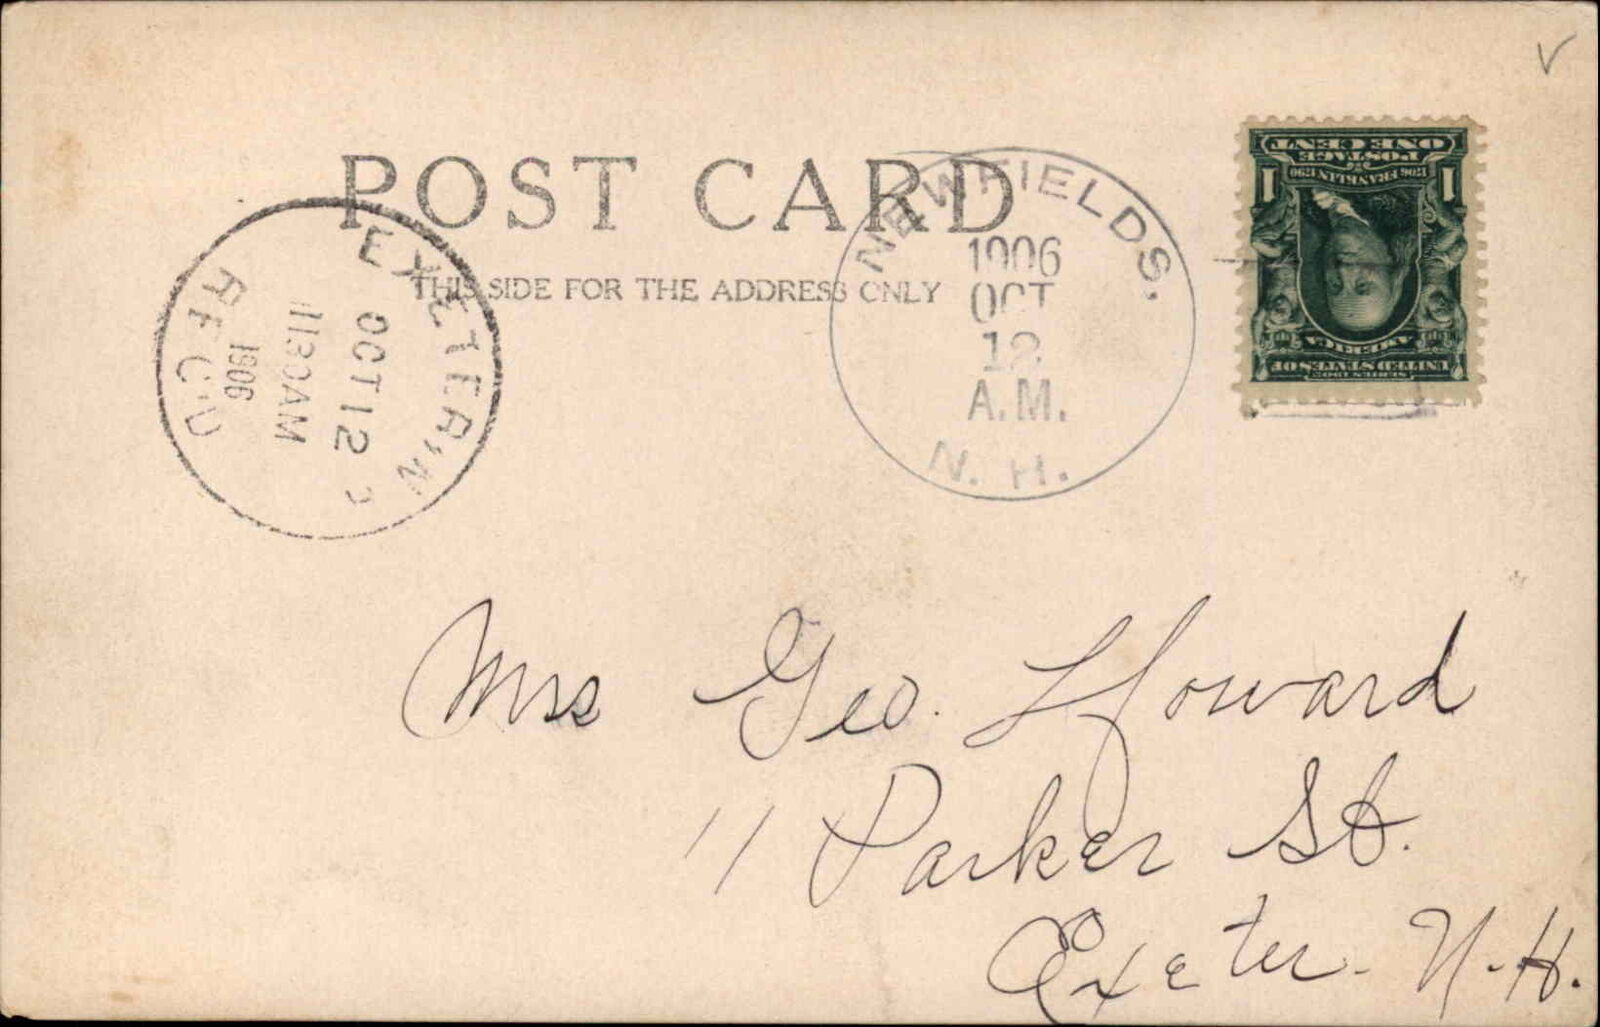 POST CARD
THIS SIDE FOR THE ADDRESS ONLY
NEWFIELDS.
1906
OCT
12
A.M.
N. H.
EXETER, N
OCT 12
1130AM
1906
REC'D
SERIES 1902
UNITED STATES OF
AMERICA
1706 FRANKLIN 1790
POSTAGE
1 ONE CENT 1
Mrs Geo. Howard
11 Parker St.
Exeter. N.H.